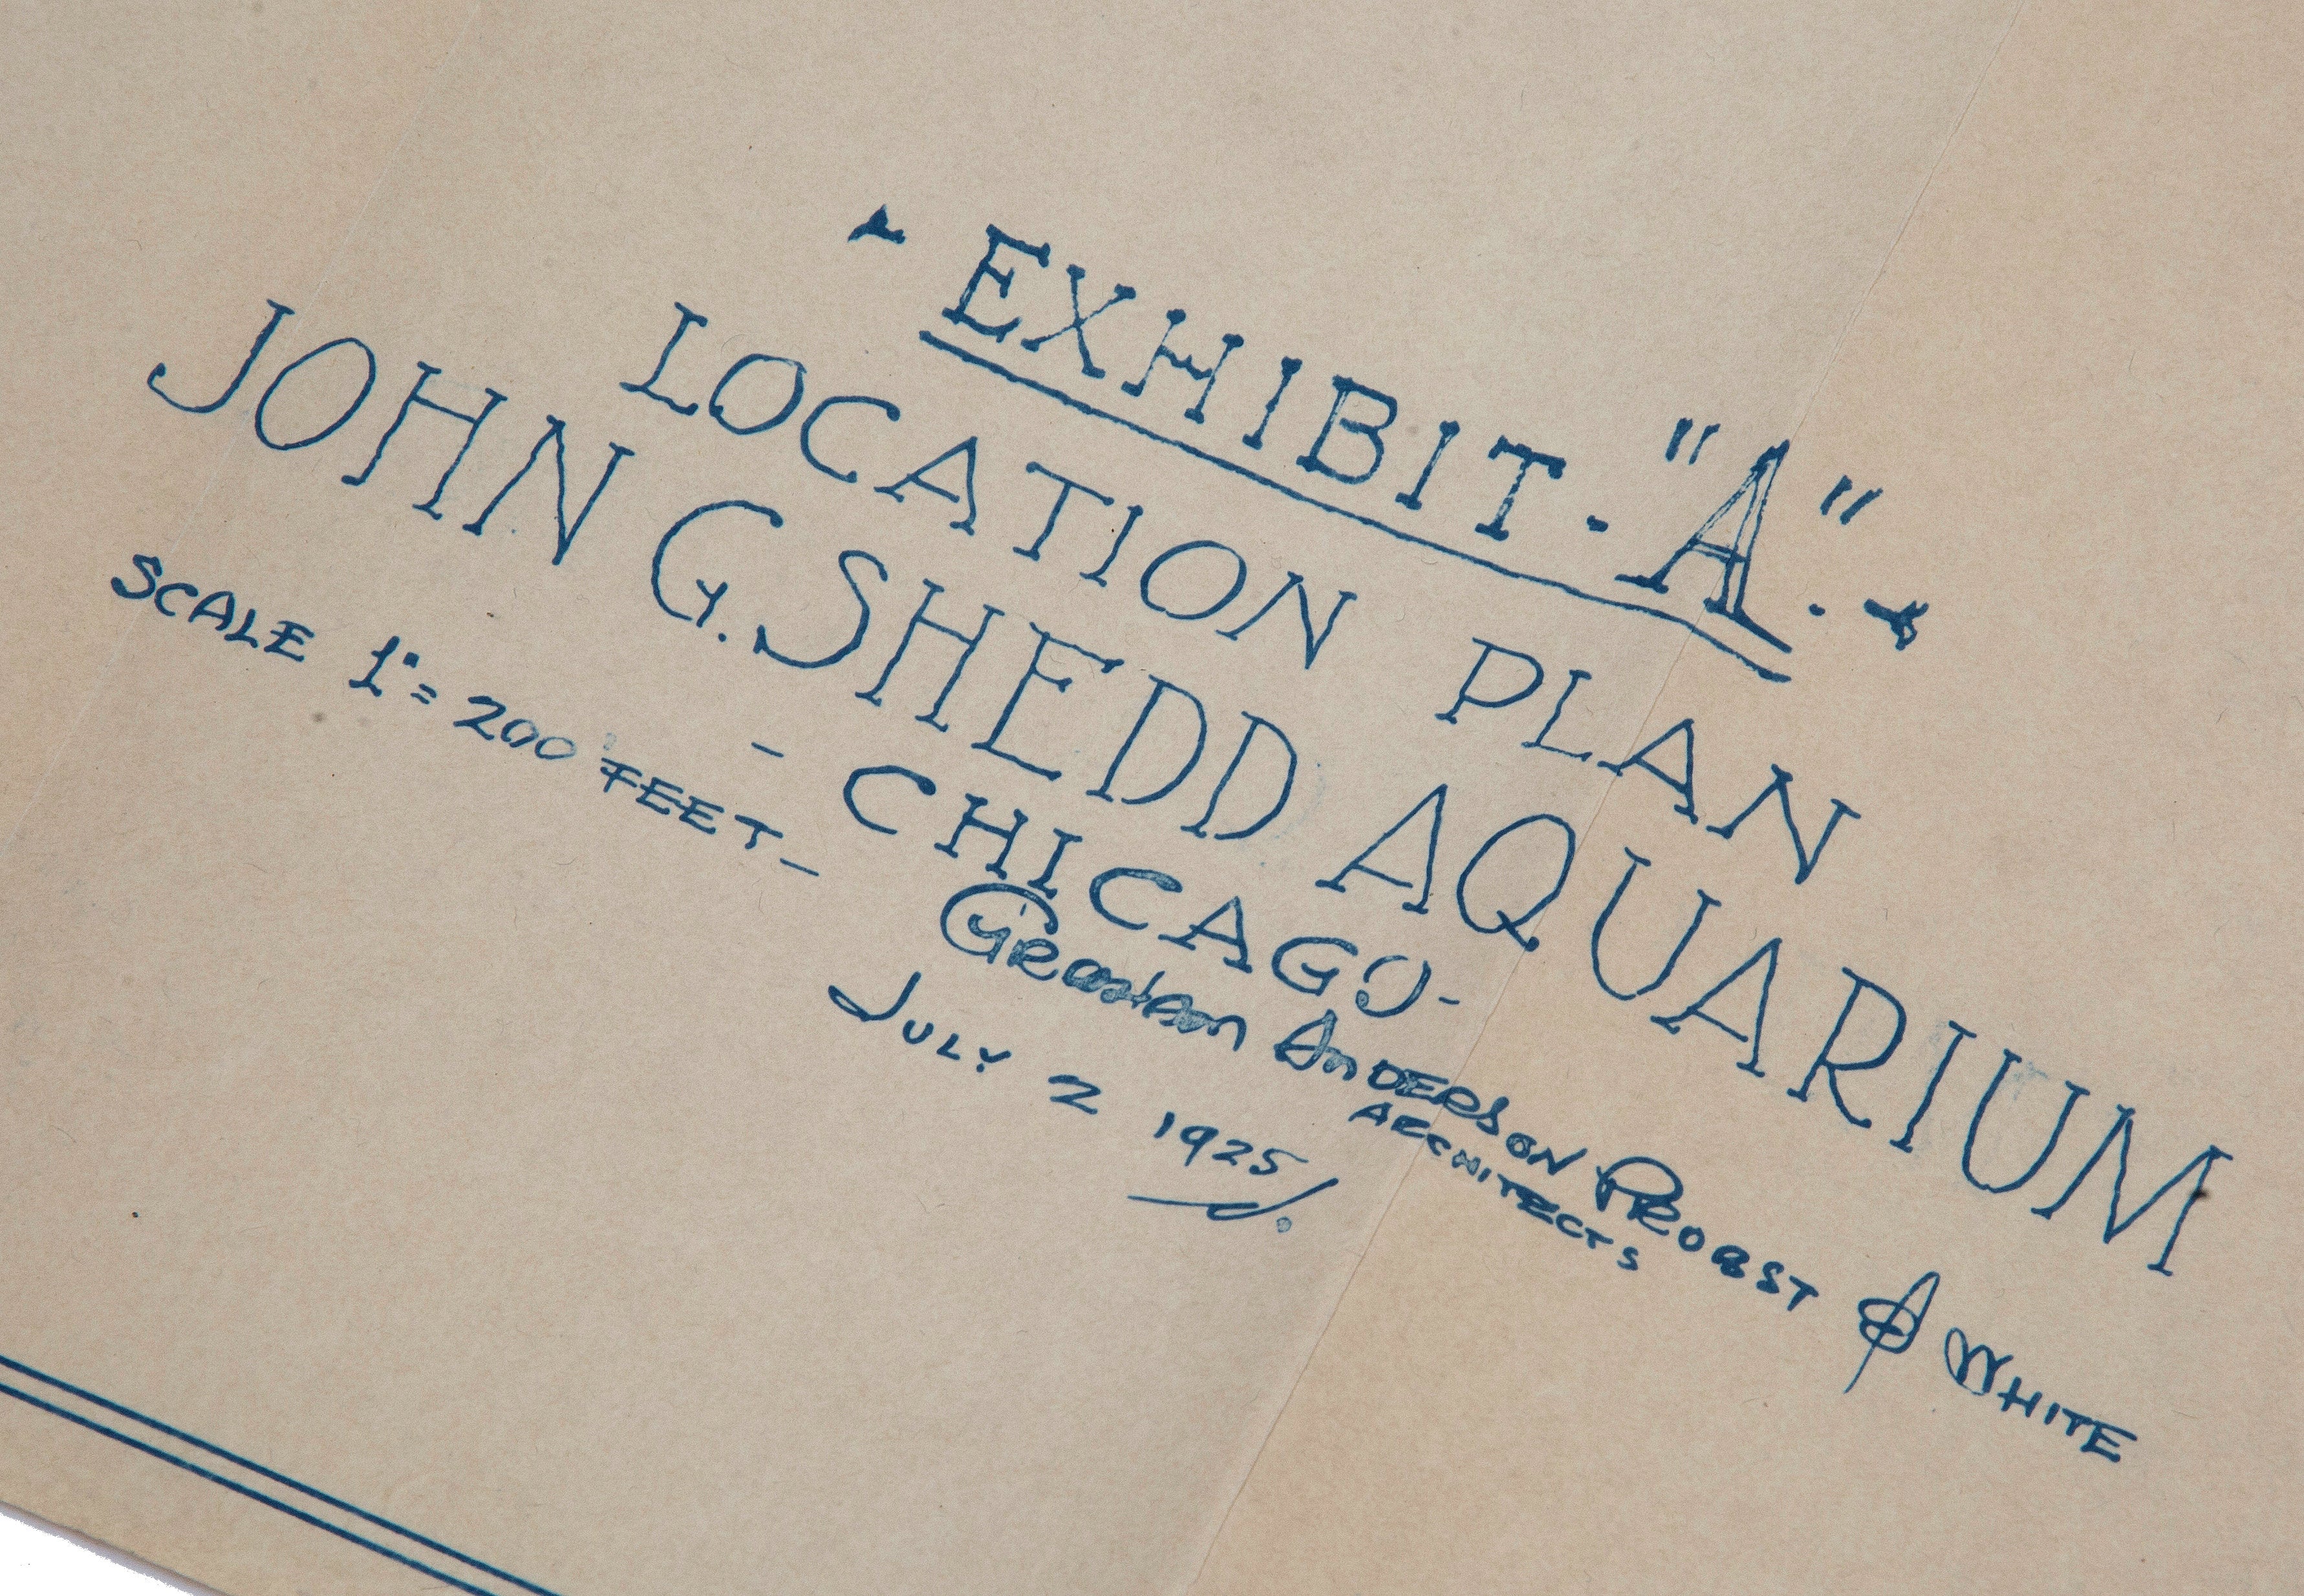 - EXHIBIT. "A". -
LOCATION PLAN
JOHN G. SHEDD AQUARIUM
- CHICAGO -
SCALE 1" = 200 FEET -
GRAHAM ANDERSON PROBST & WHITE
ARCHITECTS
JULY 2 1925